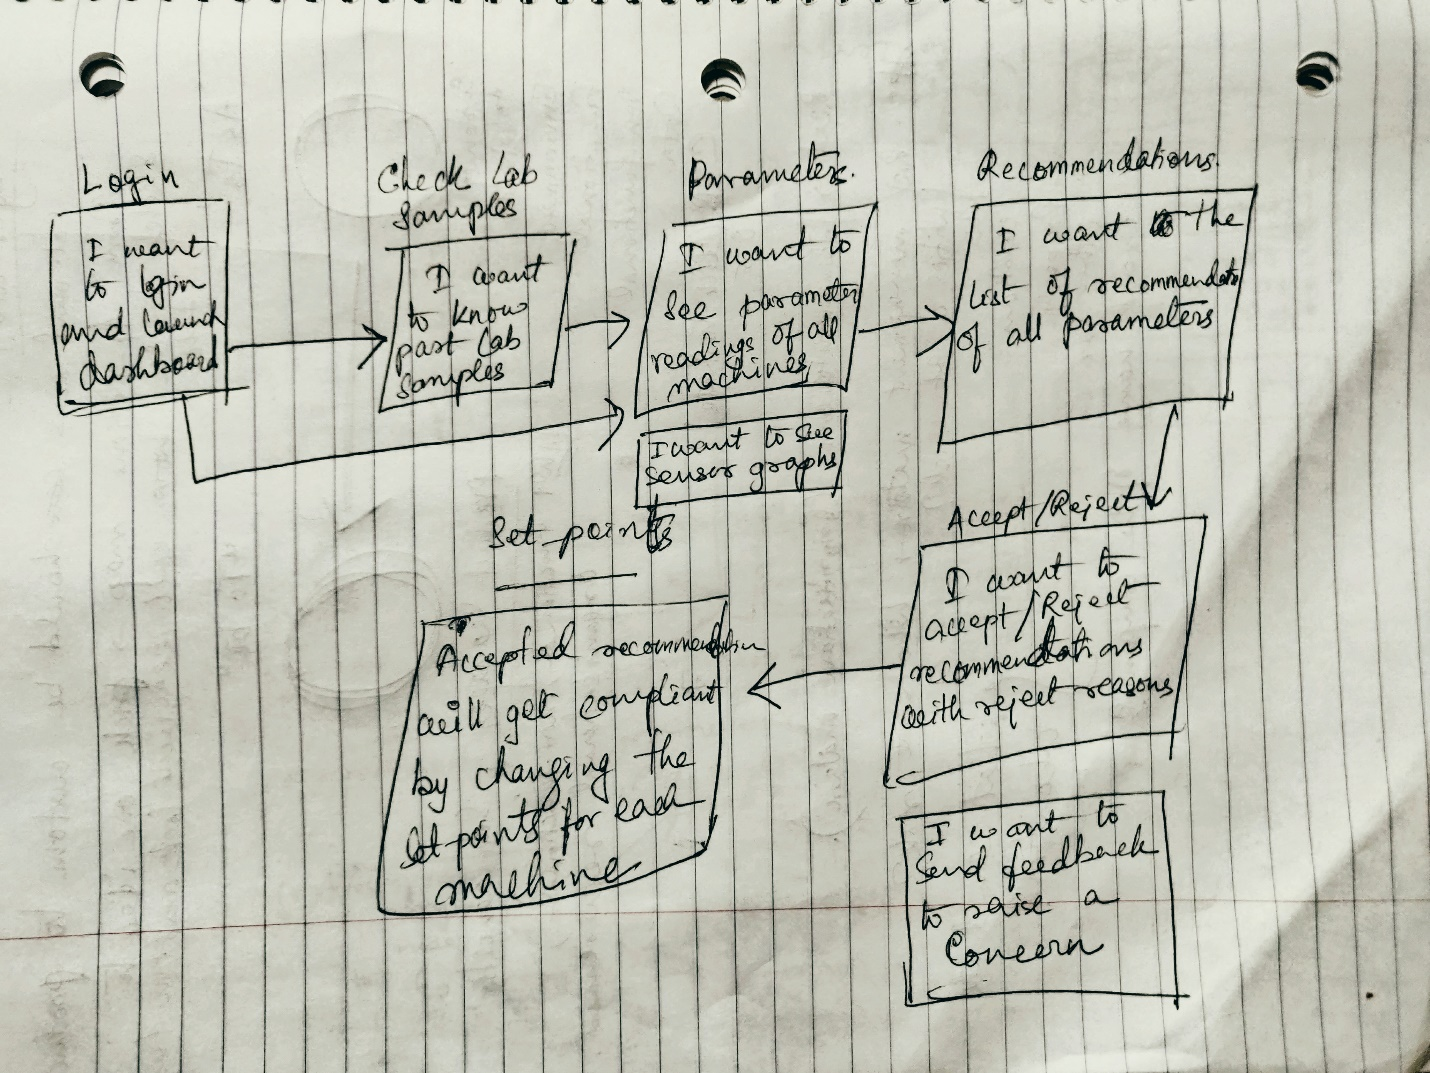 Login
I want
to login
and launch
dashboard
Check Lab
Samples
I want
to know
past Lab
samples
Parameters.
I want to
see parameter
readings of all
machines,
I want to see
sensor graphs
Recommendations.
I want the
List of recommendatn
of all parameters
Accept/Reject
I want to
accept/Reject
recommendations
with reject reasons
I want to
Send feedback
to raise a
Concern
Set-points
Accepted recommendation
will get compliant
by changing the
Set-points for each
machine